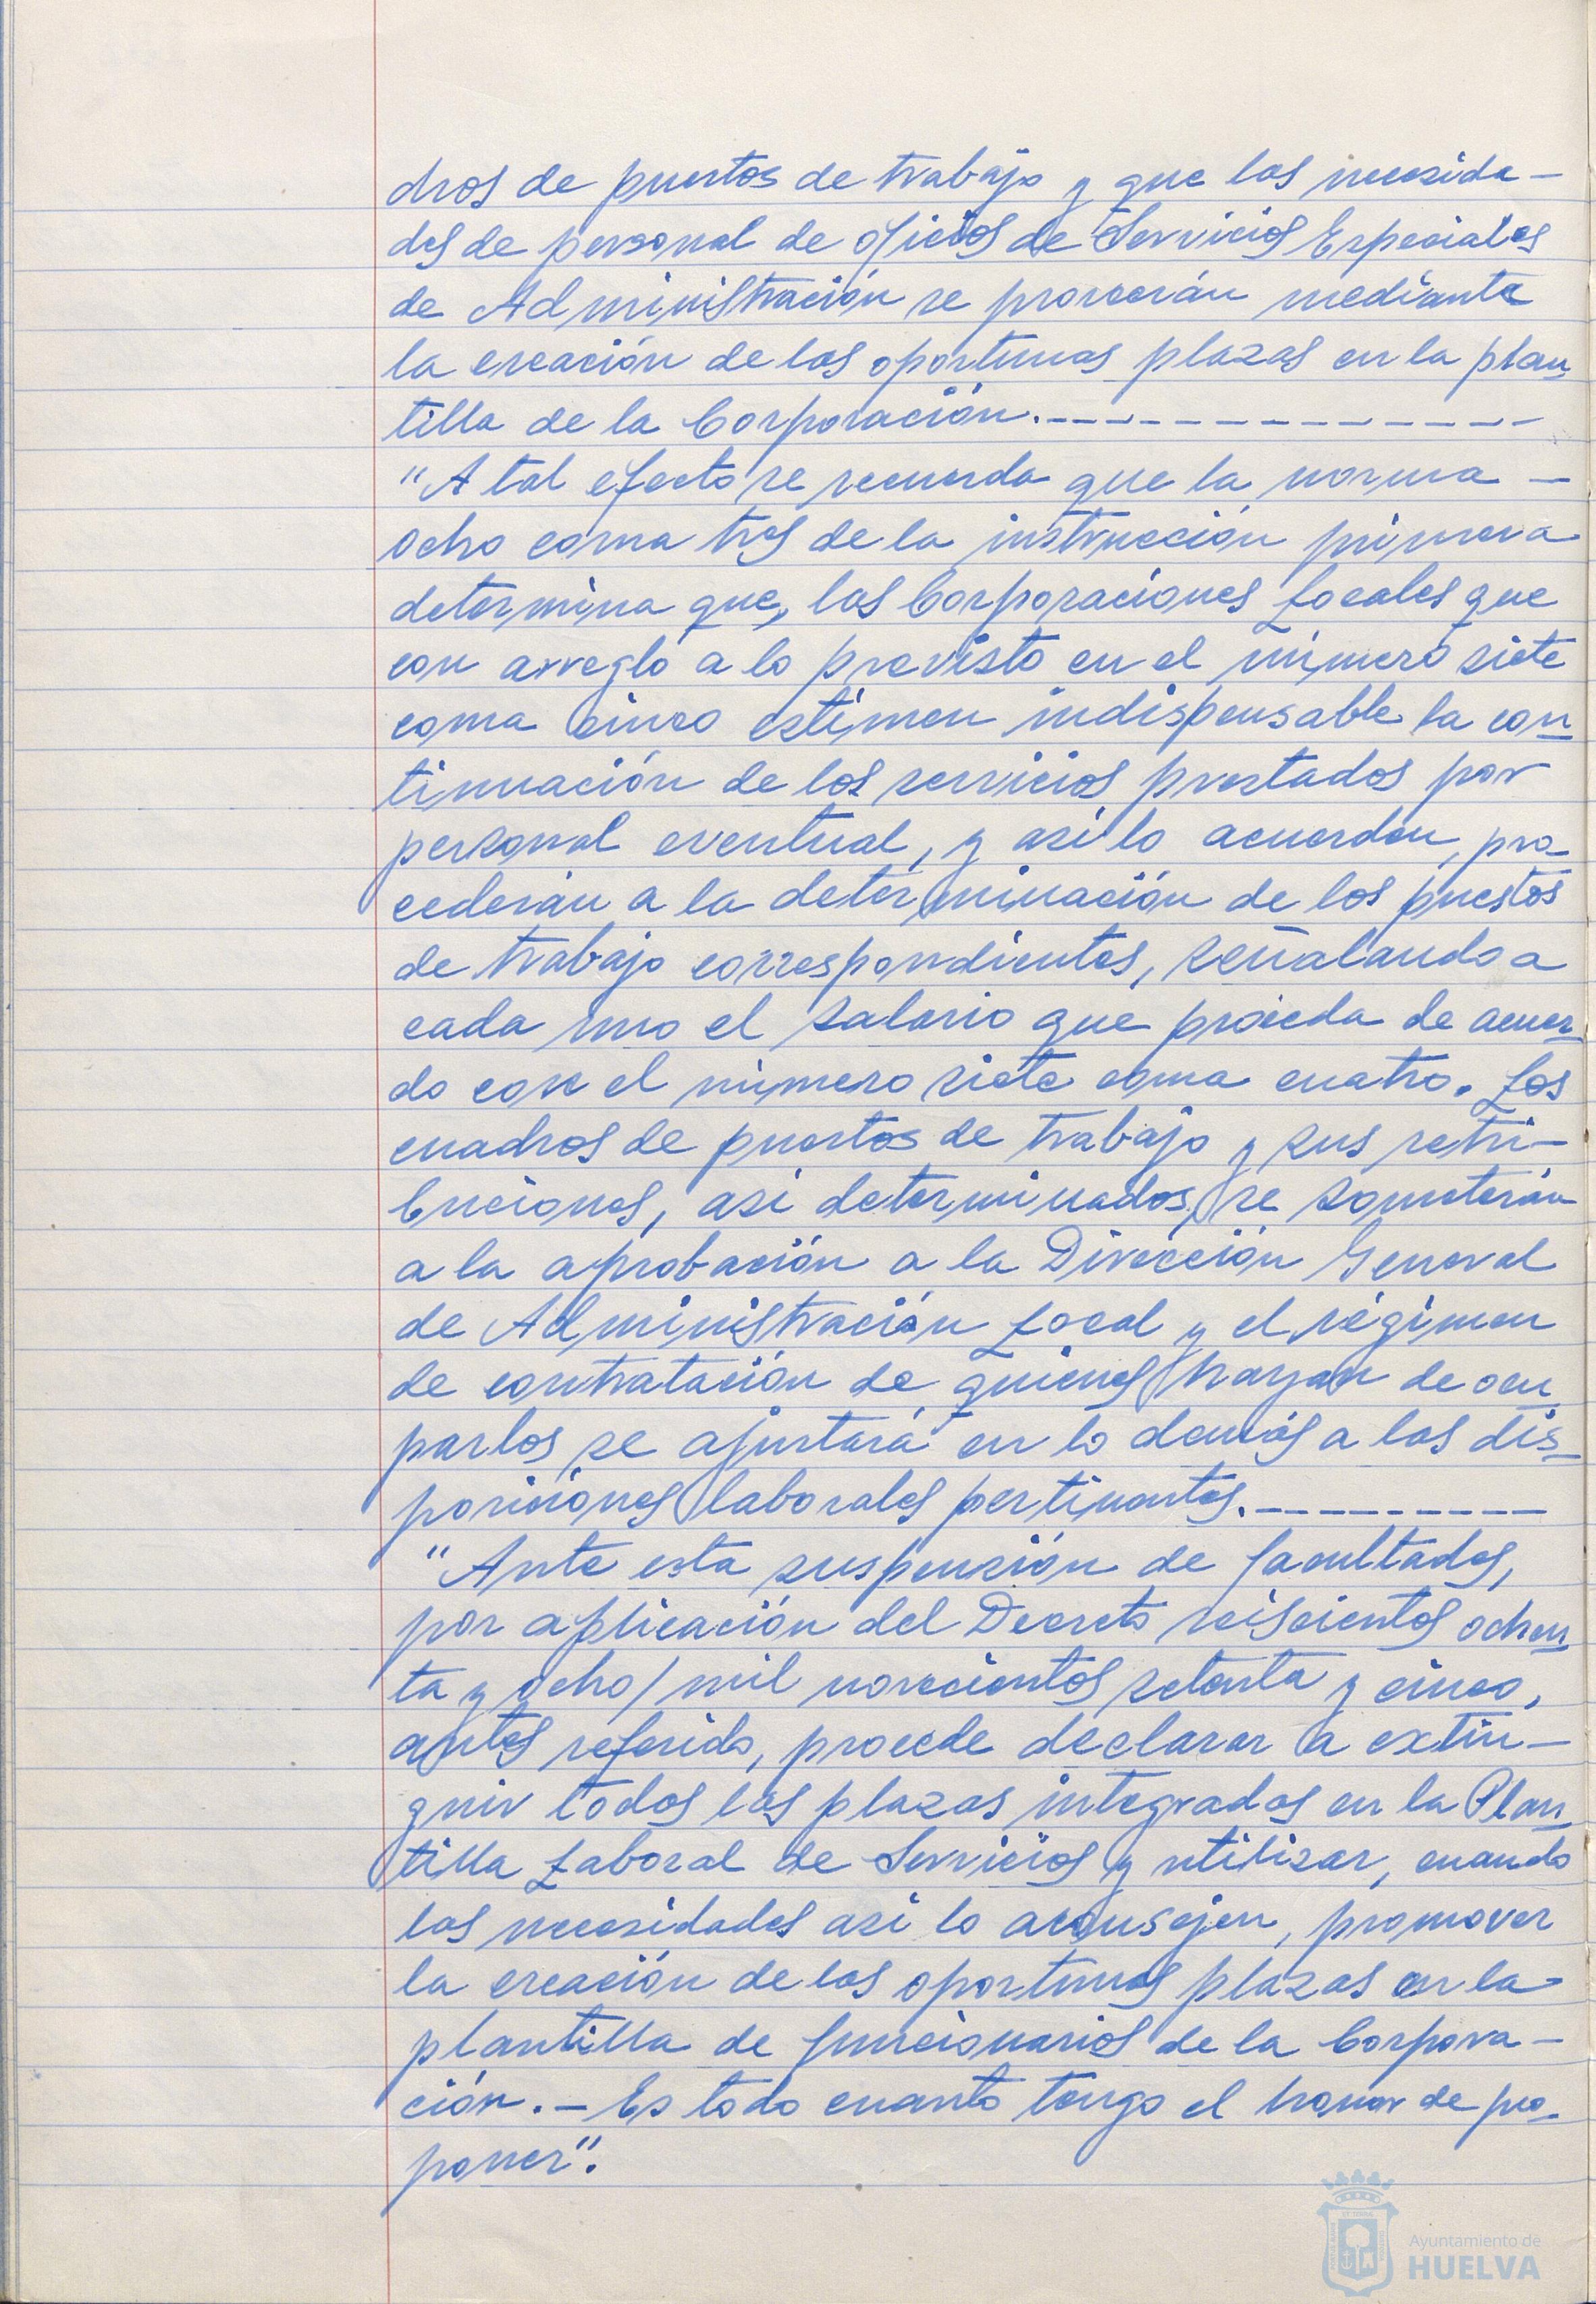 dros de puestos de trabajo y que las necesida-
des de personal de oficios de Servicios Especiales
de Administración se proveerán mediante
la creación de las oportunas plazas en la plan
tilla de la Corporación.--------------
"A tal efecto se recuerda que la norma -
ocho coma tres de la instrucción primera
determina que, las Corporaciones Locales que
con arreglo a lo previsto en el número siete
coma cinco estimen indispensable la con
tinuación de los servicios prestados por
personal eventual, y asi lo acuerden, pro
cederán a la determinación de los puestos
de trabajo correspondientes, señalando a
cada uno el salario que proceda de acuer
do con el número siete coma cuatro. Los
cuadros de puestos de trabajo y sus retri-
buciones, asi determinados, se someterán
a la aprobación a la Dirección General
de Administración Local y el régimen
de contratación de quienes hayan de ocu
parlos se ajustará en lo demás a las dis
posiciones laborales pertinentes.---------
"Ante esta suspensión de facultades,
por aplicación del Decreto seiscientos ochen
ta y ocho/mil novecientos setenta y cinco,
antes referido, procede declarar a extin-
guir todas las plazas integradas en la Plan
tilla Laboral de Servicios y utilizar, cuando
las necesidades asi lo aconsejen, promover
la creación de las oportunas plazas en la
plantilla de funcionarios de la Corpora-
ción.- Es todo cuanto tengo el honor de pro
poner".
Ayuntamiento de
HUELVA